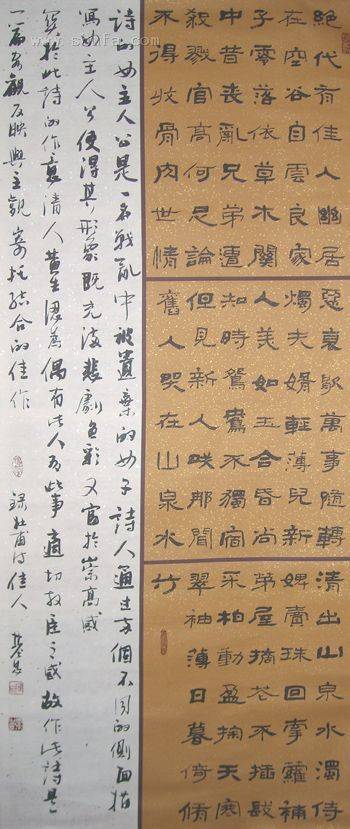 絕代有佳人幽居
在空谷自雲良家
子零落依草木關
中昔喪亂兄弟遭
殺戮官高何足論
不得收骨肉世情
惡衰歇萬事隨轉
燭夫婿輕薄兒新
人美如玉合昏尚
知時鴛鴦不獨宿
但見新人咲那聞
舊人哭在山泉水
清出山泉水濁侍
婢賣珠回牽蘿補
茅屋摘花不插髮
采柏動盈掬天寒
翠袖薄日暮倚脩
竹
詩的女主人公是一名戰亂中被遺棄的女子詩人通過多個不同的側面描
寫女主人公使得其形象既充滿悲劇色彩又富於崇高感
關於此詩的作意清人黃生認為偶有此人有此事適切放臣之感故作此詩是
一篇客觀反映與主觀寄托結合的佳作
錄杜甫詩佳人